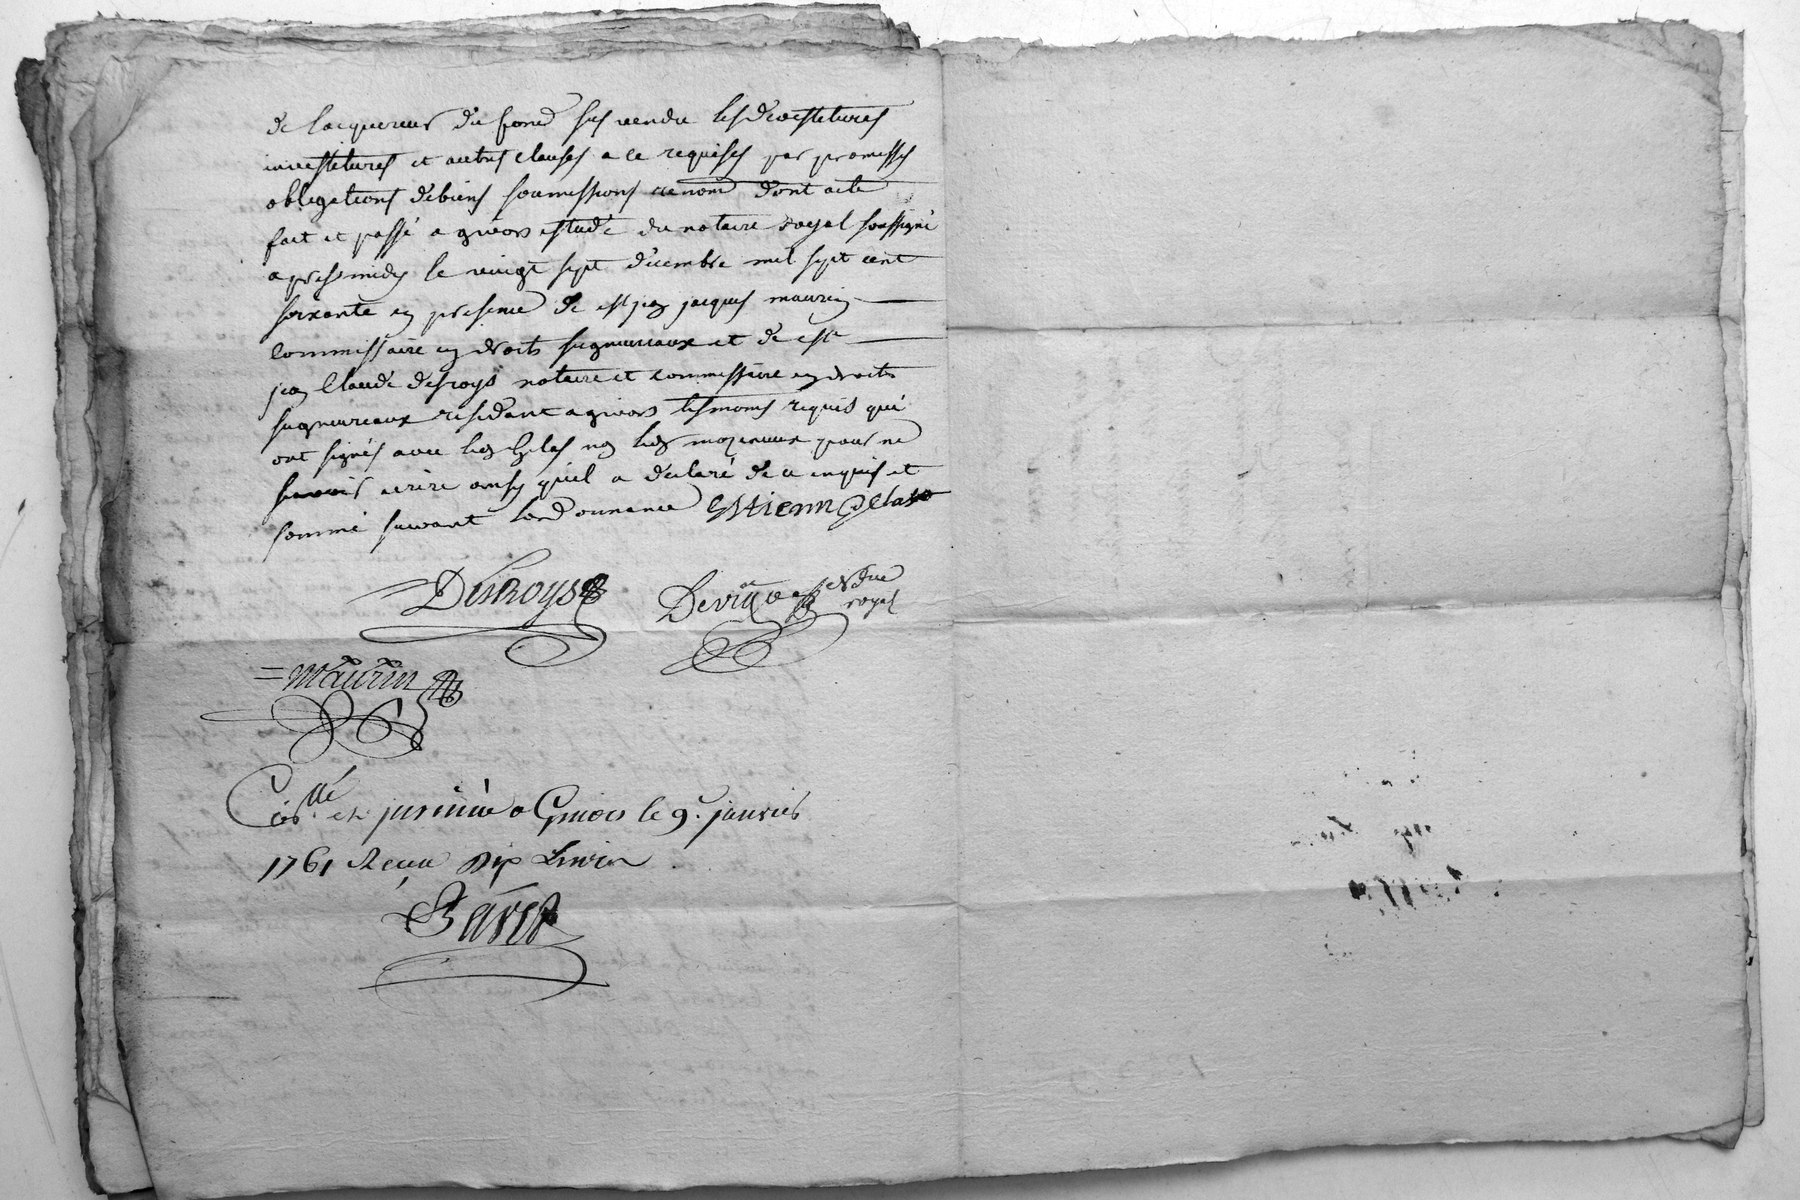 de lacquereur du fond sus vendu les devestitures
investitures et autres clauses a ce requises par promesses
obligations de biens soumissions renon dont acte
fait et passé a givors estude du notaire royal soussigné
apres midy le vingt sept decembre mil sept cent
soixante en presence de jean jacques maurin
commissaire en droits seigneuriaux et de
jean Claude desroys notaire et commissaire en droits
seigneuriaux residant a givors tesmoins requis qui
ont signés avec les gelas non les mazenaux pour ne
scavoir ecrire ainsy quil a declaré de ce enquis et
sommé suivant lordonnance Estienne Gelas
Desroys
Devi
royal
= Maurin
Con.llé et a Givors le 9.e janvier
1761 Recu Dix